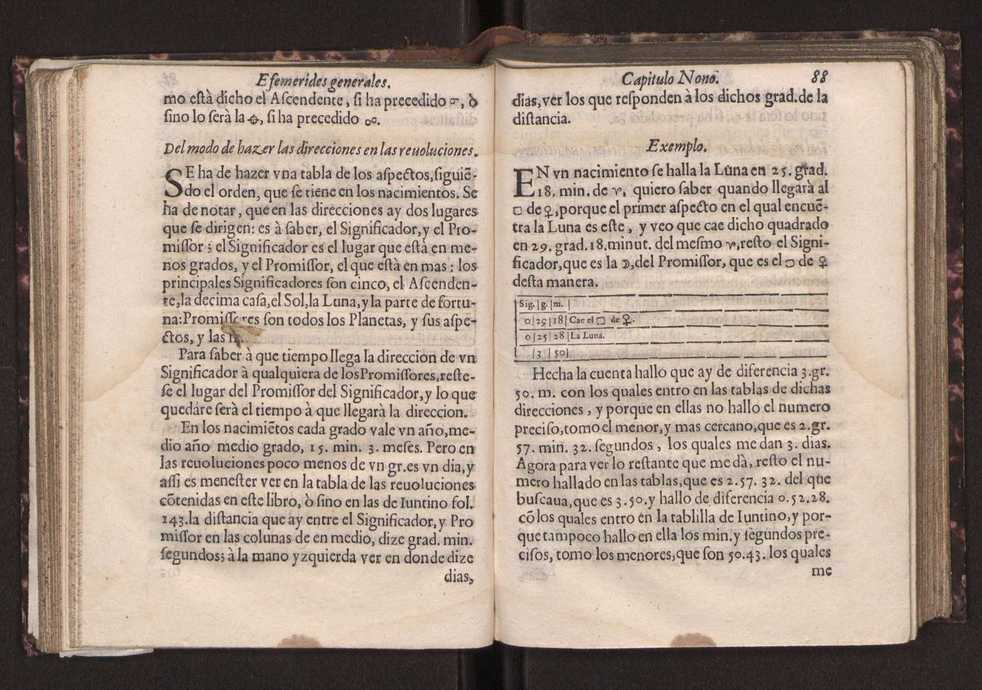 Efemerides generales.
mo està dicho el Ascendente, si ha precedido ☌, ò
sino lo serà la ⊕, si ha precedido ☍.
Del modo de hazer las direcciones en las reuoluciones.
SE ha de hazer vna tabla de los aspectos, siguiẽ-
do el orden, que se tiene en los nacimientos. Se
ha de notar, que en las direcciones ay dos lugares
que se dirigen: es à saber, el Significador, y el Pro-
missor; el Significador es el lugar que està en me-
nos grados, y el Promissor, el que està en mas: los
principales Significadores son cinco, el Ascenden-
te, la decima casa, el Sol, la Luna, y la parte de fortu-
na: Promissores son todos los Planetas, y sus aspe-
ctos, y las
Para saber à que tiempo llega la direccion de vn
Significador à qualquiera de los Promissores, reste-
se el lugar del Promissor del Significador, y lo que
quedáre serà el tiempo à que llegarà la direccion.
En los nacimiẽtos cada grado vale vn año, me-
dio año medio grado, 15. min. 3. meses. Pero en
las reuoluciones poco menos de vn gr. es vn dia, y
assi es menester ver en la tabla de las reuoluciones
cõtenidas en este libro, ò sino en las de Iuntino fol.
143. la distancia que ay entre el Significador, y Pro
missor en las colunas de en medio, dize grad. min.
segundos; à la mano yzquierda ver en donde dize
dias,
Capitulo Nono. 88
dias, ver los que responden à los dichos grad. de la
distancia.
Exemplo.
EN vn nacimiento se halla la Luna en 25. grad.
18. min. de ♈, quiero saber quando llegarà al
□ de ♀, porque el primer aspecto en el qual encuẽ-
tra la Luna es este, y veo que cae dicho quadrado
en 29. grad. 18. minut. del mesmo ♈, resto el Signi-
ficador, que es la ☽, del Promissor, que es el □ de ♀
desta manera.
Sig. | g. | m. |
0 | 29 | 18 | Cae el □ de ♀.
0 | 25 | 28 | La Luna.
| 3 | 50 |
Hecha la cuenta hallo que ay de diferencia 3. gr.
50. m. con los quales entro en las tablas de dichas
direcciones, y porque en ellas no hallo el numero
preciso, tomo el menor, y mas cercano, que es 2. gr.
57. min. 32. segundos, los quales me dan 3. dias.
Agora para ver lo restante que me dà, resto el nu-
mero hallado en las tablas, que es 2. 57. 32. del que
buscaua, que es 3. 50. y hallo de diferencia 0. 52. 28.
cõ los quales entro en la tablilla de Iuntino, y por-
que tampoco hallo en ella los min. y segundos pre-
cisos, tomo los menores, que son 50. 43. los quales
me